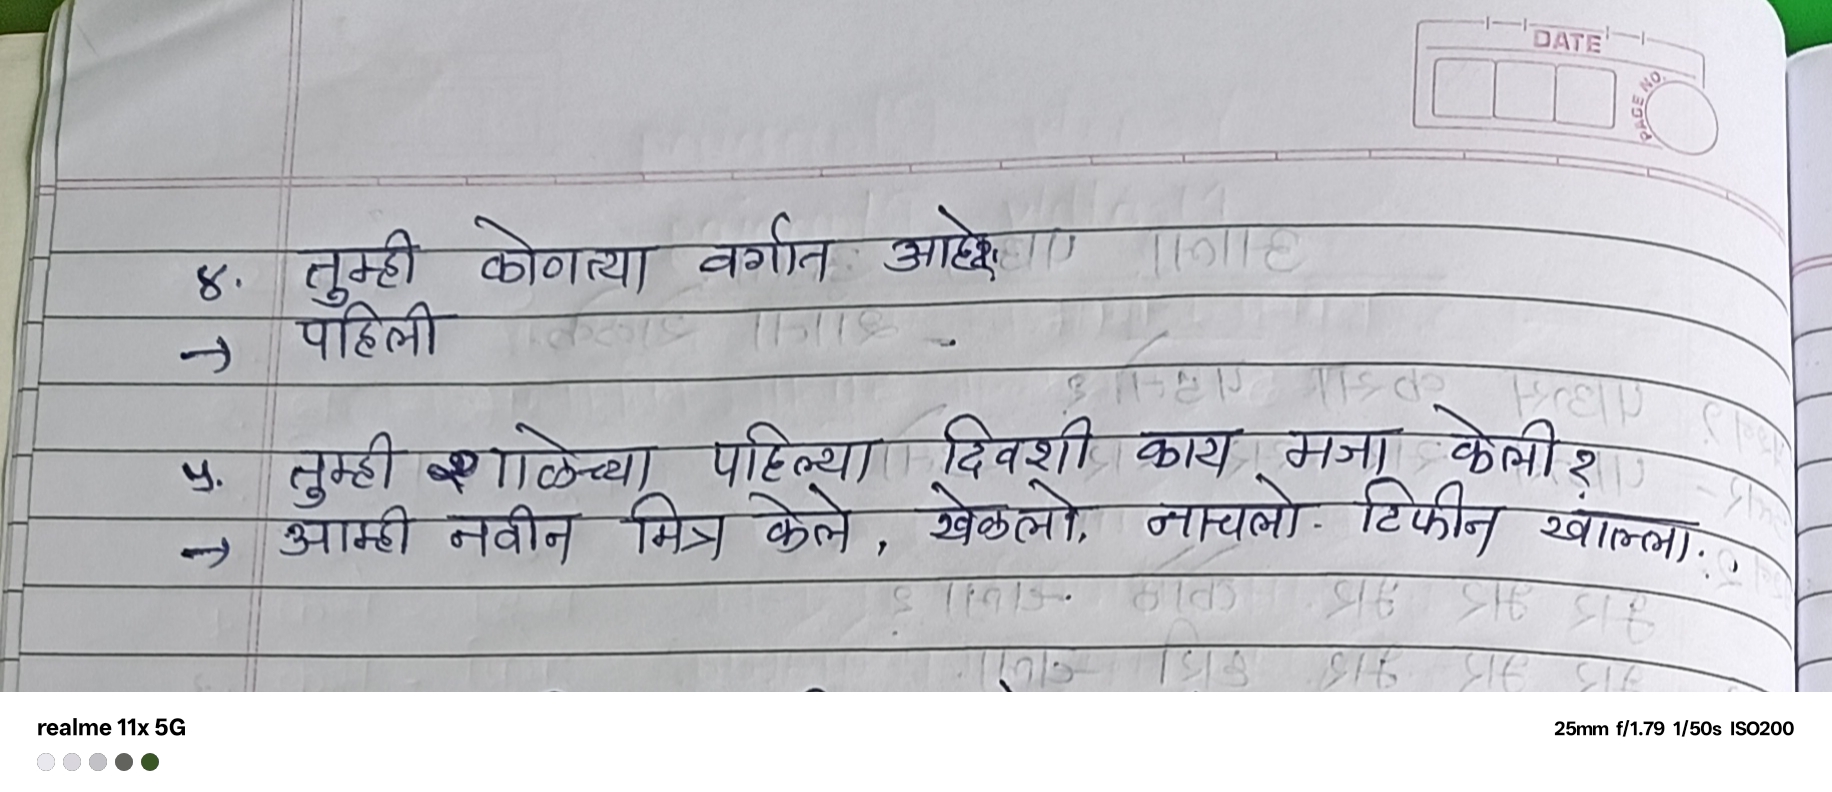 DATE
PAGE NO.
४. तुम्ही कोणत्या वर्गात आहे?
→ पहिली
५. तुम्ही शाळेच्या पहिल्या दिवशी काय मजा केली?
→ आम्ही नवीन मित्र केले, खेळलो, नाचलो. टिफीन खाल्ला.
realme 11x 5G
25mm f/1.79 1/50s ISO200